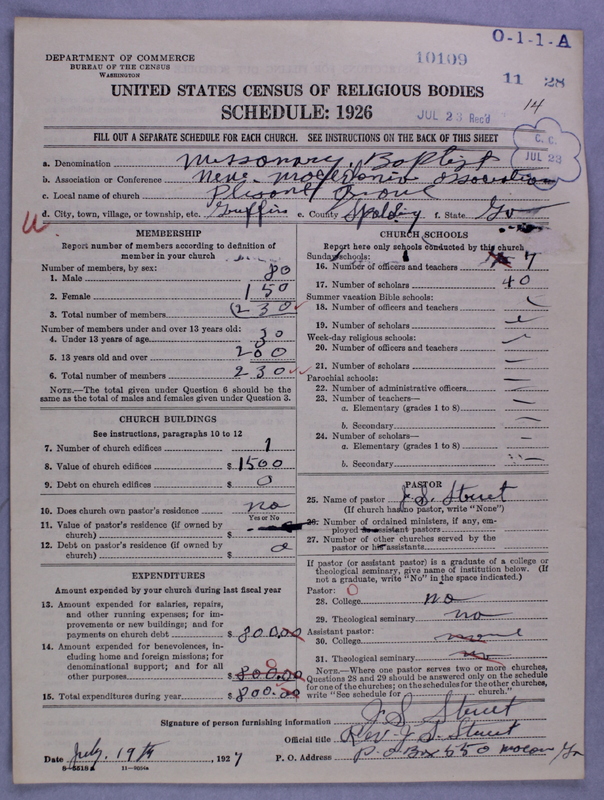 O-1-1-A
DEPARTMENT OF COMMERCE
BUREAU OF THE CENSUS
WASHINGTON
10109
11 28
UNITED STATES CENSUS OF RELIGIOUS BODIES
SCHEDULE: 1926
14
JUL 23 Rec'd
FILL OUT A SEPARATE SCHEDULE FOR EACH CHURCH. SEE INSTRUCTIONS ON THE BACK OF THIS SHEET
C. C.
JUL 23
a. Denomination Missonary Baptist
b. Association or Conference New Macedonia Association
c. Local name of church Plesant Grove
d. City, town, village, or township, etc. Griffin e. County Spalding f. State Ga
W.
MEMBERSHIP
Report number of members according to definition of
member in your church
Number of members, by sex:
1. Male 80
2. Female 150
3. Total number of members (230
Number of members under and over 13 years old:
4. Under 13 years of age 30
5. 13 years old and over 200
6. Total number of members 230
NOTE.—The total given under Question 6 should be
same as the total of males and females given under Question 3.
CHURCH BUILDINGS
See instructions, paragraphs 10 to 12
7. Number of church edifices 1
8. Value of church edifices $1500
9. Debt on church edifices $ 0
10. Does church own pastor's residence? no
Yes or No
11. Value of pastor's residence (if owned by
church) $
12. Debt on pastor's residence (if owned by
church) $ 0
EXPENDITURES
Amount expended by your church during last fiscal year
13. Amount expended for salaries, repairs,
and other running expenses; for im-
provements or new buildings; and for
payments on church debt $ 800.00
14. Amount expended for benevolences, in-
cluding home and foreign missions; for
denominational support; and for all
other purposes $ 800.00
15. Total expenditures during year $ 800.00
CHURCH SCHOOLS
Report here only schools conducted by this church
Sunday schools: 1
16. Number of officers and teachers 7
17. Number of scholars 40
Summer vacation Bible schools:
18. Number of officers and teachers
19. Number of scholars
Week-day religious schools:
20. Number of officers and teachers
21. Number of scholars
Parochial schools:
22. Number of administrative officers
23. Number of teachers—
a. Elementary (grades 1 to 8)
b. Secondary
24. Number of scholars—
a. Elementary (grades 1 to 8)
b. Secondary
PASTOR
25. Name of pastor J. S. Street
(If church has no pastor, write "None")
26. Number of ordained ministers, if any, em-
ployed as assistant pastors
27. Number of other churches served by the
pastor or his assistants
If pastor (or assistant pastor) is a graduate of a college or
theological seminary, give name of institution below. (If
not a graduate, write "No" in the space indicated.)
Pastor: 0
28. College no
29. Theological seminary no
Assistant pastor:
30. College none
31. Theological seminary no
NOTE.—Where one pastor serves two or more churches,
Questions 28 and 29 should be answered only on the schedule
for one of the churches; on the schedules for the other churches,
write "See schedule for church."
Signature of person furnishing information J. S. Street
Official title Rev. J. S. Street
Date July. 19th, 1927 P. O. Address P. O Box 550 Macon/Ga
8-5518a 11-9034a